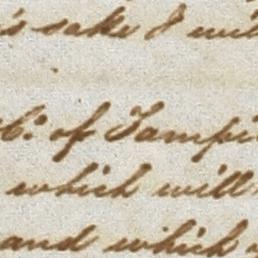 's sake I will
C.º of Tampi
which will
and which